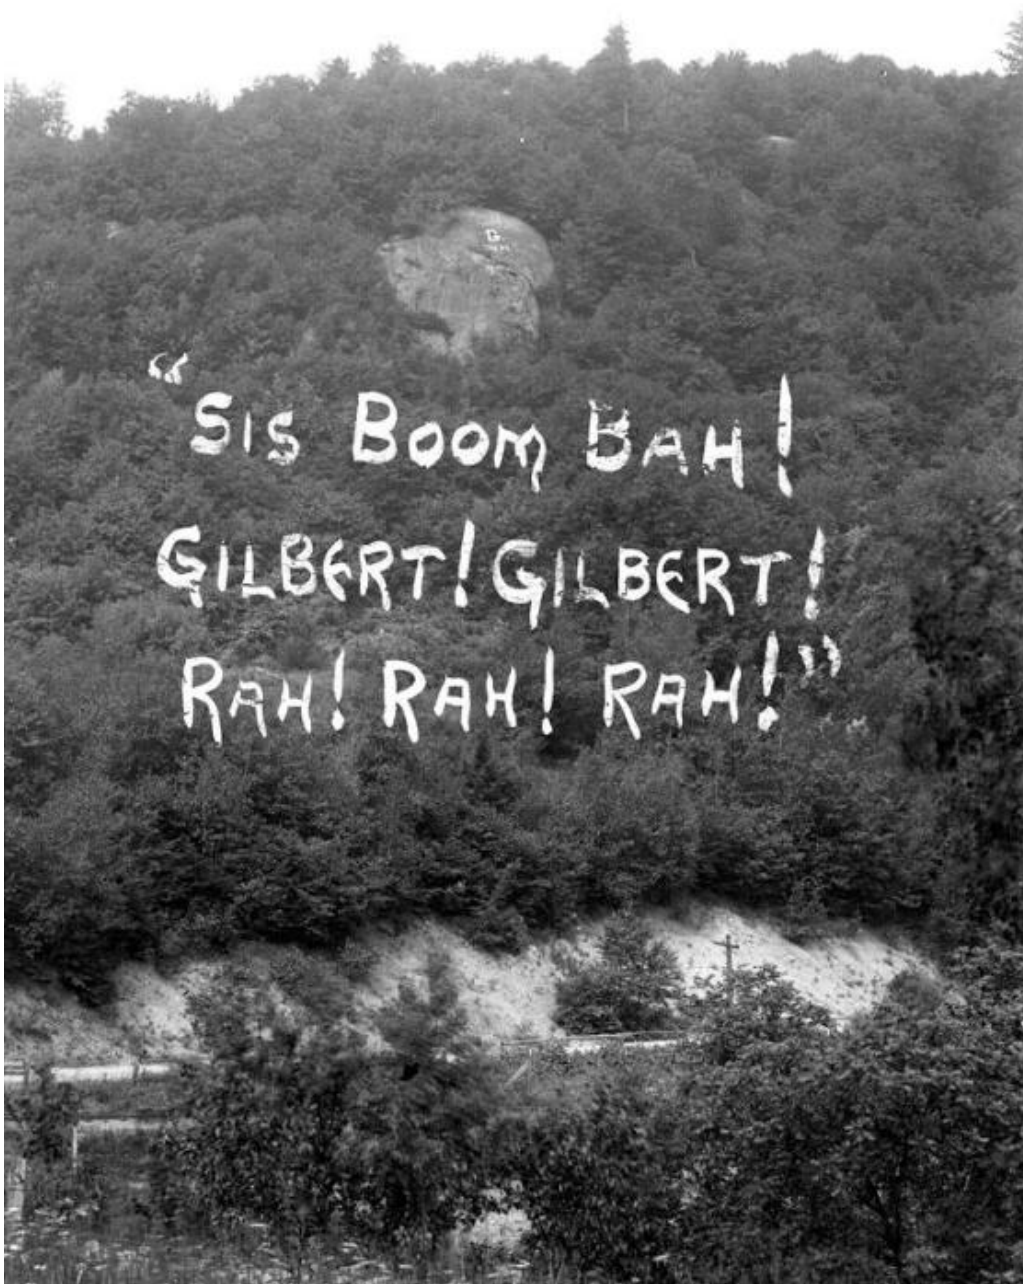 G.
“SIS BOOM BAH!
GILBERT! GILBERT!
RAH! RAH! RAH!”